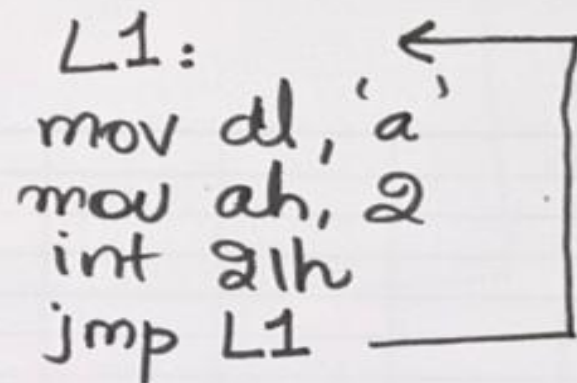 L1:
mov dl, 'a'
mov ah, 2
int 21h
jmp L1